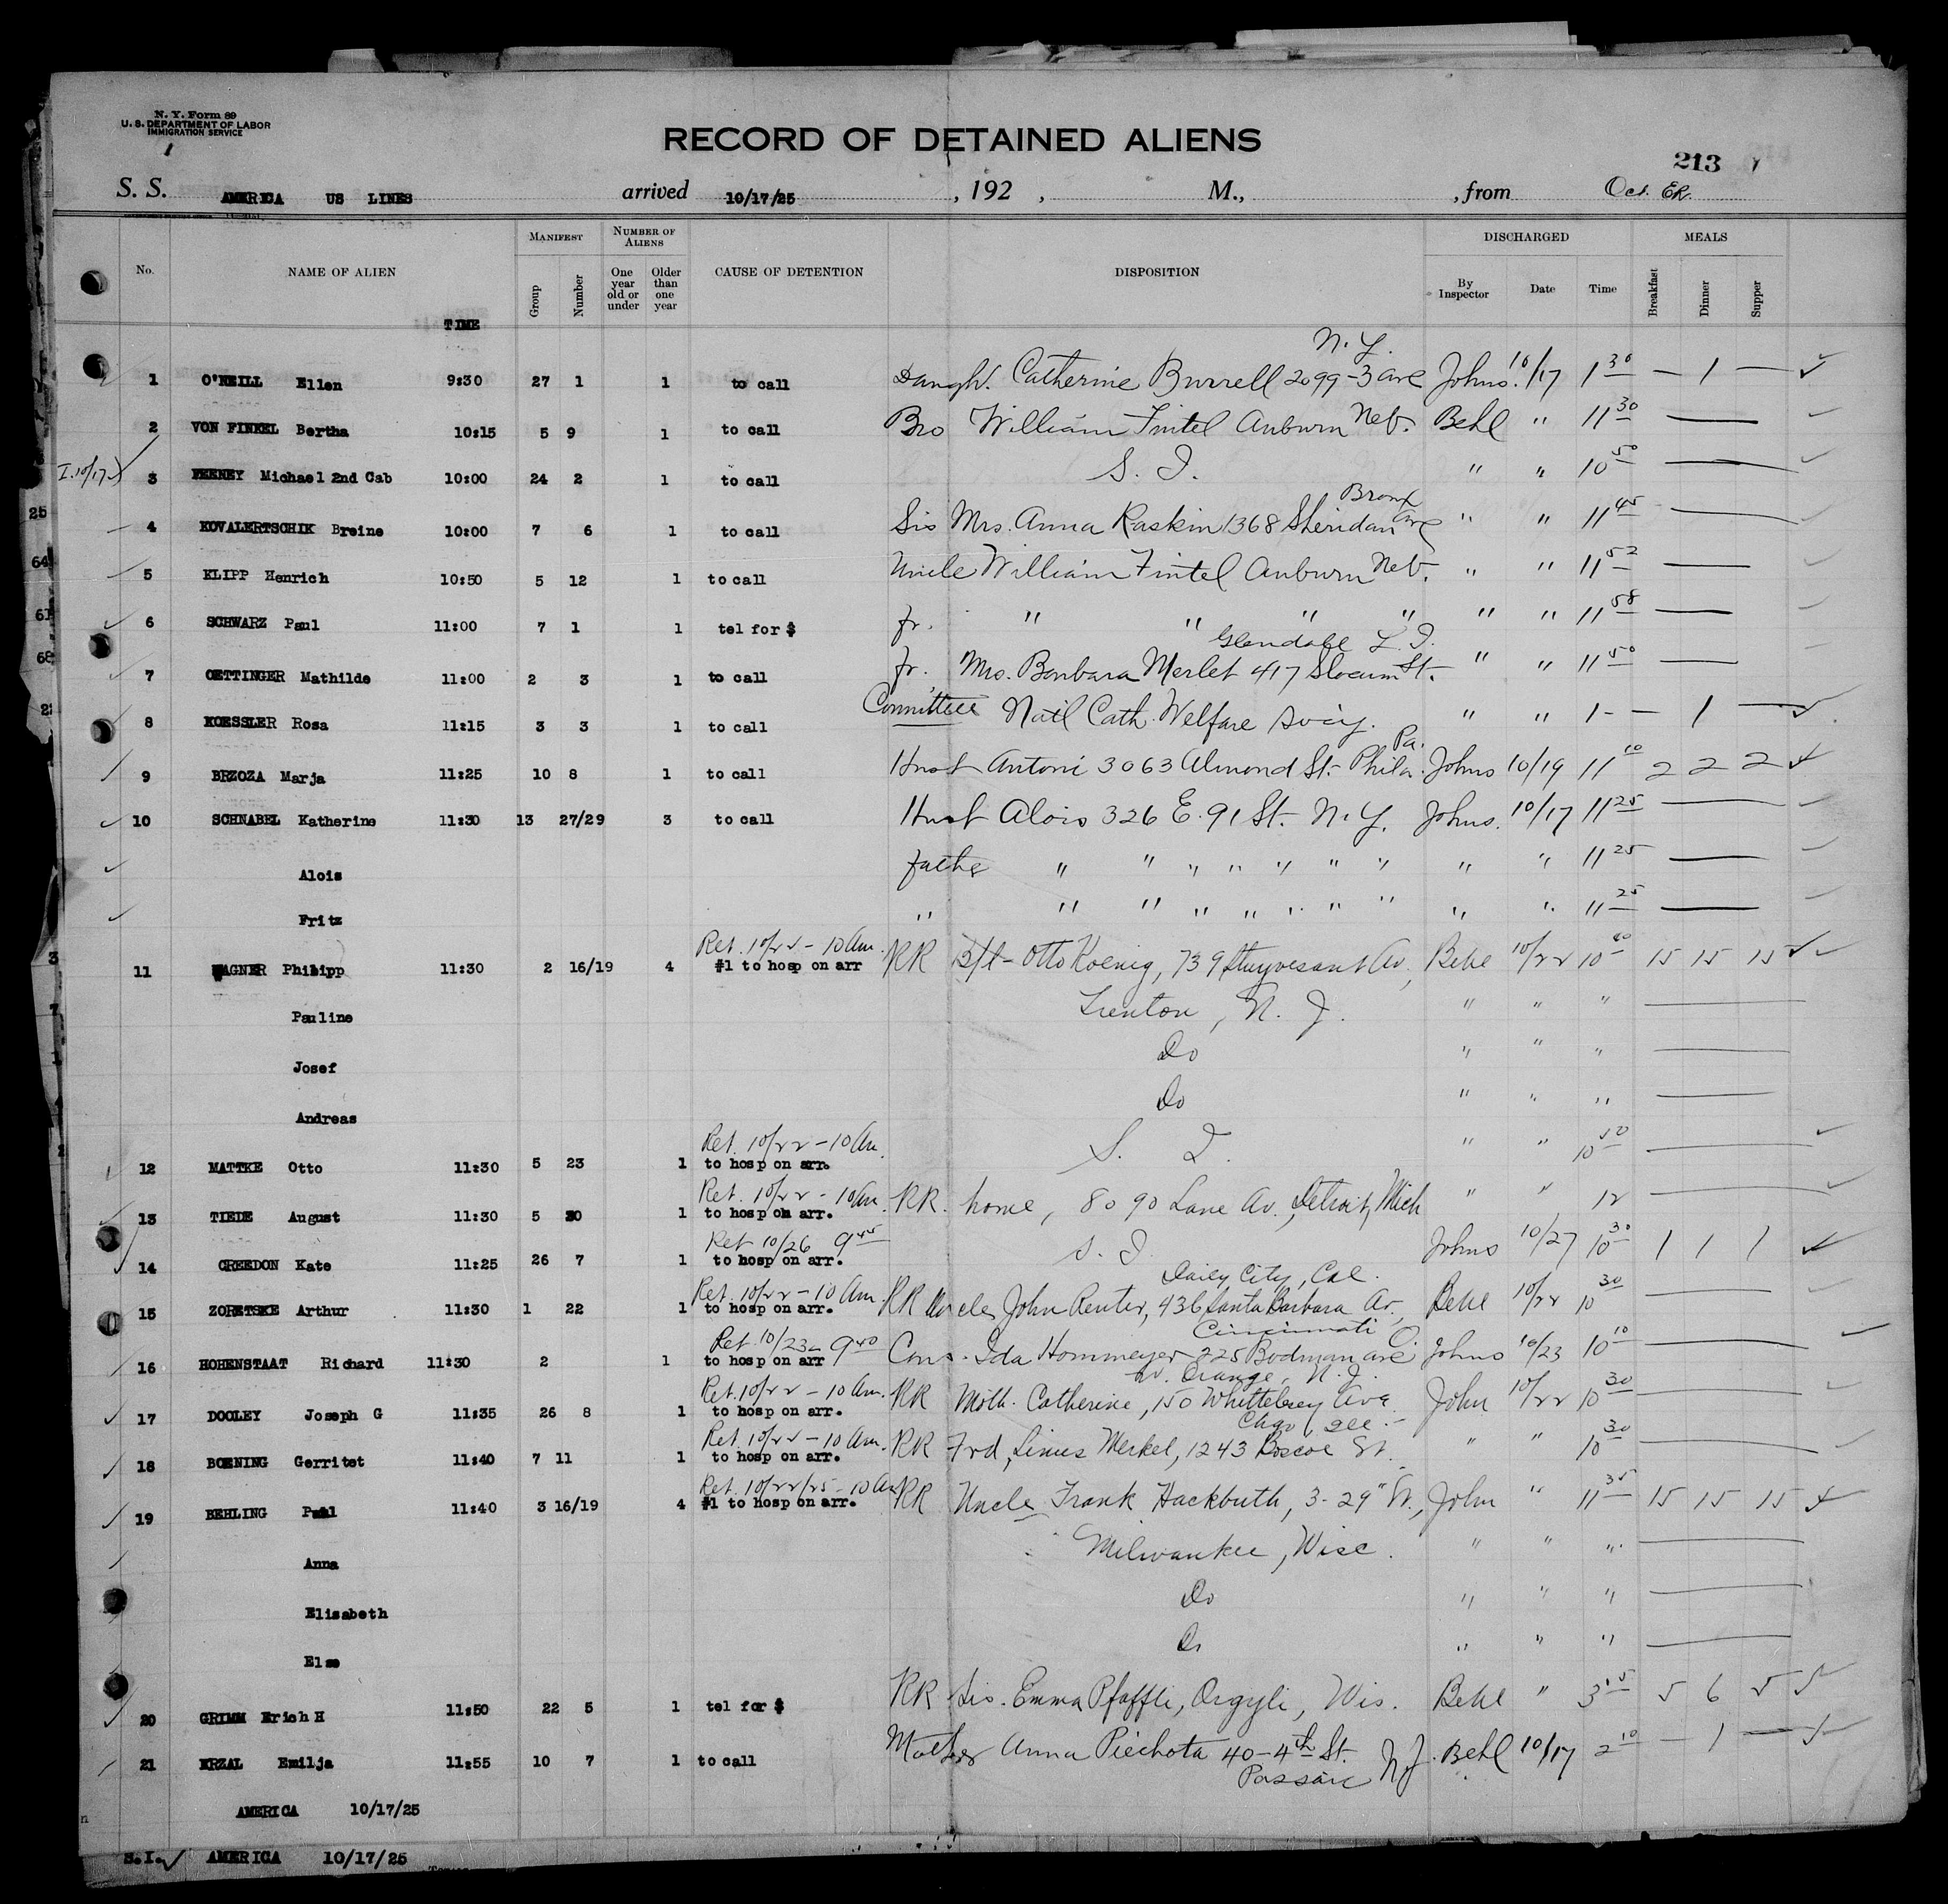 N. Y. Form 89
U. S. DEPARTMENT OF LABOR
IMMIGRATION SERVICE
1
RECORD OF DETAINED ALIENS
213
S. S. AMERICA US LINES arrived 10/17/25 , 192 , M., , from Oct. ER.
No. NAME OF ALIEN TIME MANIFEST Group Number NUMBER OF ALIENS One year old or under Older than one year CAUSE OF DETENTION DISPOSITION DISCHARGED By Inspector Date Time MEALS Breakfast Dinner Supper
N. Y.
1 O'NEILL Ellen 9:30 27 1 1 to call Daugh. Catherine Burrell 2099-3 Ave Johns. 10/17 1 30 — 1 —
2 VON FINKEL Bertha 10:15 5 9 1 to call Bro William Fintel Auburn Neb. Behl " 11 30
I. 10/17 3 FEENEY Michael 2nd Cab 10:00 24 2 1 to call S. I. " " 10 50
Bronx
4 KOVALERTSCHIK Breine 10:00 7 6 1 to call Sis Mrs. Anna Raskin 1368 Sheridan Ave " " 11 45
5 KLIPP Henrich 10:50 5 12 1 to call Uncle William Fintel Auburn Neb. " " 11 52
6 SCHWARZ Paul 11:00 7 1 1 tel for $ fr. " " " " " " 11 58
Glendale L. I.
7 OETTINGER Mathilde 11:00 2 3 1 to call fr. Mrs. Barbara Merlet 417 Slocum St. " " 11 50
8 KOESSLER Rosa 11:15 3 3 1 to call Committee Nat'l Cath. Welfare Socy. " " 1 - — 1 —
Pa.
9 BRZOZA Marja 11:25 10 8 1 to call Husb Antoni 3063 Almond St. Phila. Johns 10/19 11 10 2 2 2
10 SCHNABEL Katherine 11:30 13 27/29 3 to call Husb Alois 326 E. 91 St. N. Y. Johns. 10/17 11 25
Alois father " " " " " " " " " 11 25
Fritz " " " " " " " " " " 11 25
Ret. 10/22 - 10 Am.
11 WAGNER Philipp 11:30 2 16/19 4 #1 to hosp on arr RR Otto Koenig, 739 Stuyvesant Av, Behl 10/22 10 40 15 15 15
Pauline Trenton, N. J. " " "
Josef Do " " "
Andreas Do " " "
Ret. 10/22 - 10 Am.
12 MATTKE Otto 11:30 5 23 1 to hosp on arr. S. I. " " 10 50
Ret. 10/22 - 10 Am.
13 TIEDE August 11:30 5 30 1 to hosp on arr. RR. home, 8090 Lane Av. Detroit, Mich " " 12
Ret 10/26 9 45
14 CREEDON Kate 11:25 26 7 1 to hosp on arr. S. I. Johns 10/27 10 30 1 1 1
Ret. 10/22 - 10 Am. Daily City, Cal.
15 ZORETSKE Arthur 11:30 1 22 1 to hosp on arr. RR Uncle John Renter, 436 Santa Barbara Av, Behl 10/22 10 30
Ret 10/23 - 9 40 Cincinnati O.
16 HOHENSTAAT Richard 11:30 2 1 to hosp on arr Cous. Ida Hommeyer 225 Bodman ave Johns 10/23 10 10
Ret. 10/22 - 10 Am. W. Orange, N. J.
17 DOOLEY Joseph G 11:35 26 8 1 to hosp on arr. RR Moth. Catherine, 150 Whittelsey Ave John 10/22 10 30
Ret. 10/22 - 10 Am. Chgo, Ill.
18 BOENING Gerritet 11:40 7 11 1 to hosp on arr. RR Frd, Linus Merkel, 1243 Roscoe St. " " 10 30
Ret. 10/22/25 - 10 Am
19 BEHLING Paul 11:40 3 16/19 4 #1 to hosp on arr. RR Uncle Frank Hackbuth, 3-29" St., John " 11 35 15 15 15
Anna Milwaukee, Wisc. " " "
Elisabeth Do " " "
Else Do " " "
20 GRIMM Erich H 11:50 22 5 1 tel for $ RR Sis. Emma Pfaffli, Argyli, Wis. Behl " 3 15 5 6 5
21 KRZAL Emilja 11:55 10 7 1 to call Mother Anna Piechota 40-4th St. N J. Behl 10/17 2 10 — 1 —
Passaic
AMERICA 10/17/25
S.I. AMERICA 10/17/25